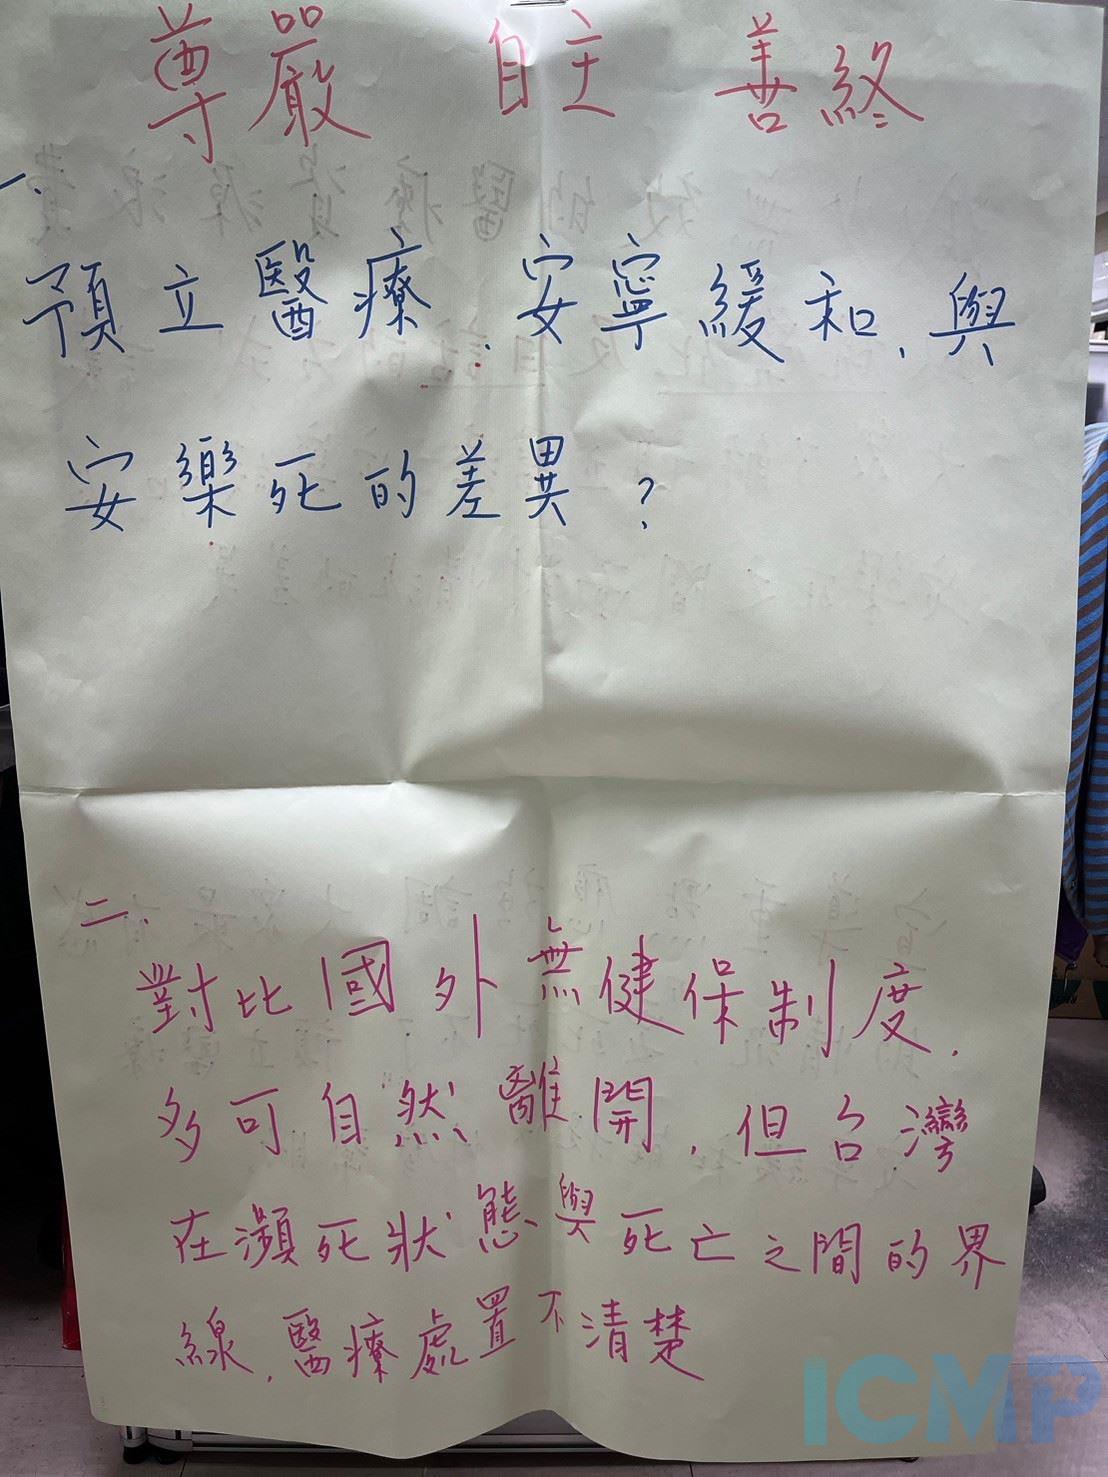 尊嚴 自主 善終
一、
預立醫療、安寧緩和、與
安樂死的差異？
二、
對比國外無健保制度，
多可自然離開，但台灣
在瀕死狀態與死亡之間的界
線，醫療處置不清楚
ICMP